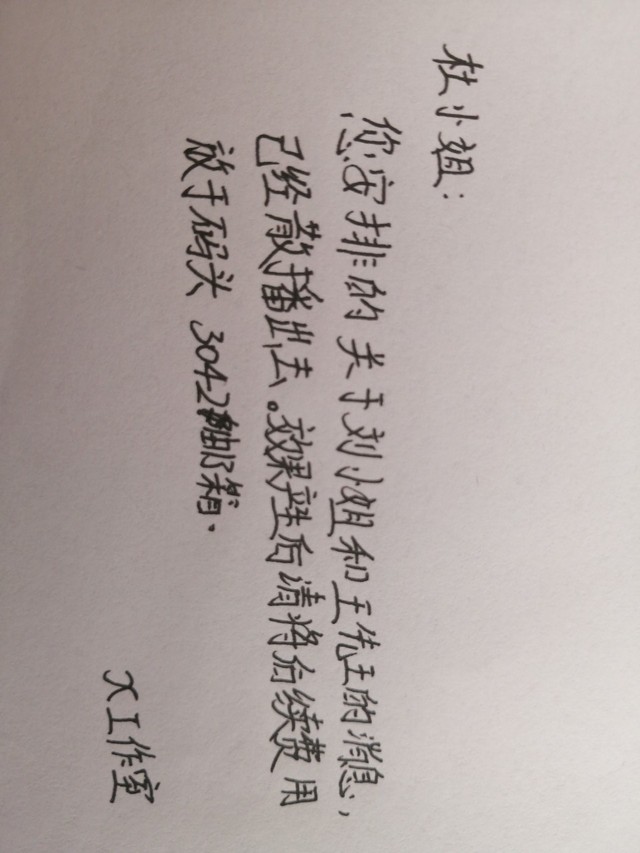 杜小姐:
您安排的关于刘小姐和王先生的消息,
已经散播出去。效果产生后请将后续费用
放于码头3042邮箱.
X工作室